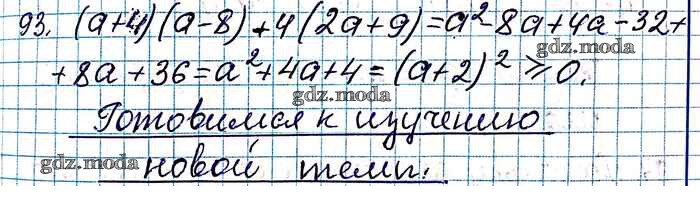 93. (a+4)(a-8)+4(2a+9)=a²-8a+4a-32+
gdz.moda
+8a+36=a²+4a+4=(a+2)²⩾0.
gdz.moda
Готовимся к изучению
gdz.moda
gdz.moda
новой темы.